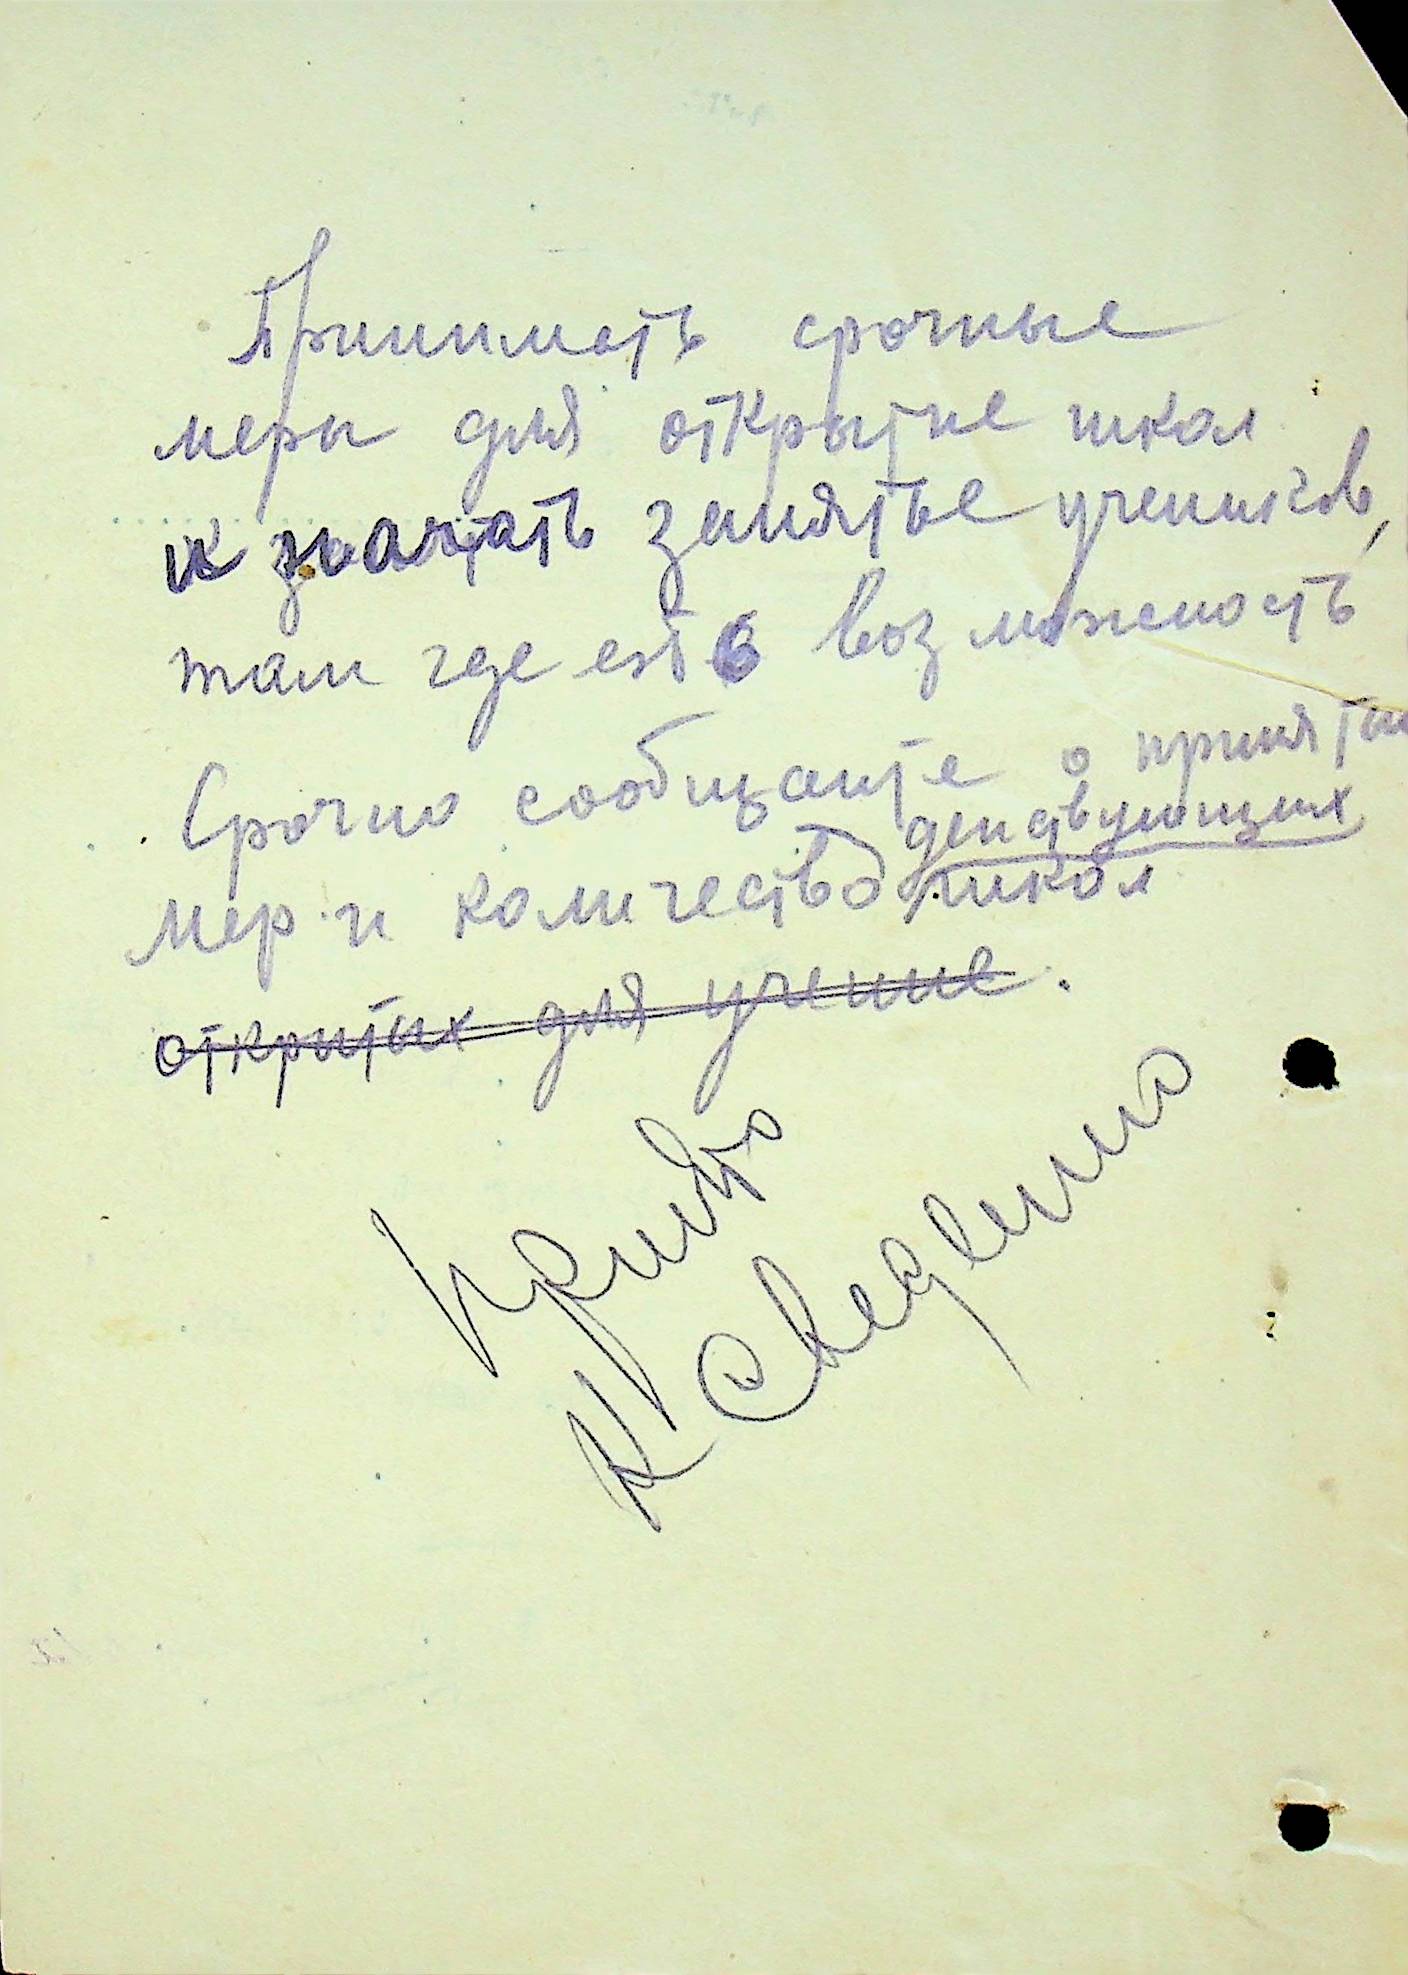 Принимать срочные
меры для открытие школ
и начать занятье учеников,
там где есть возможность
Срочно сообщаите о приняты
действующих
мер и количество школ
открытых для учение.
Принято
к сведению